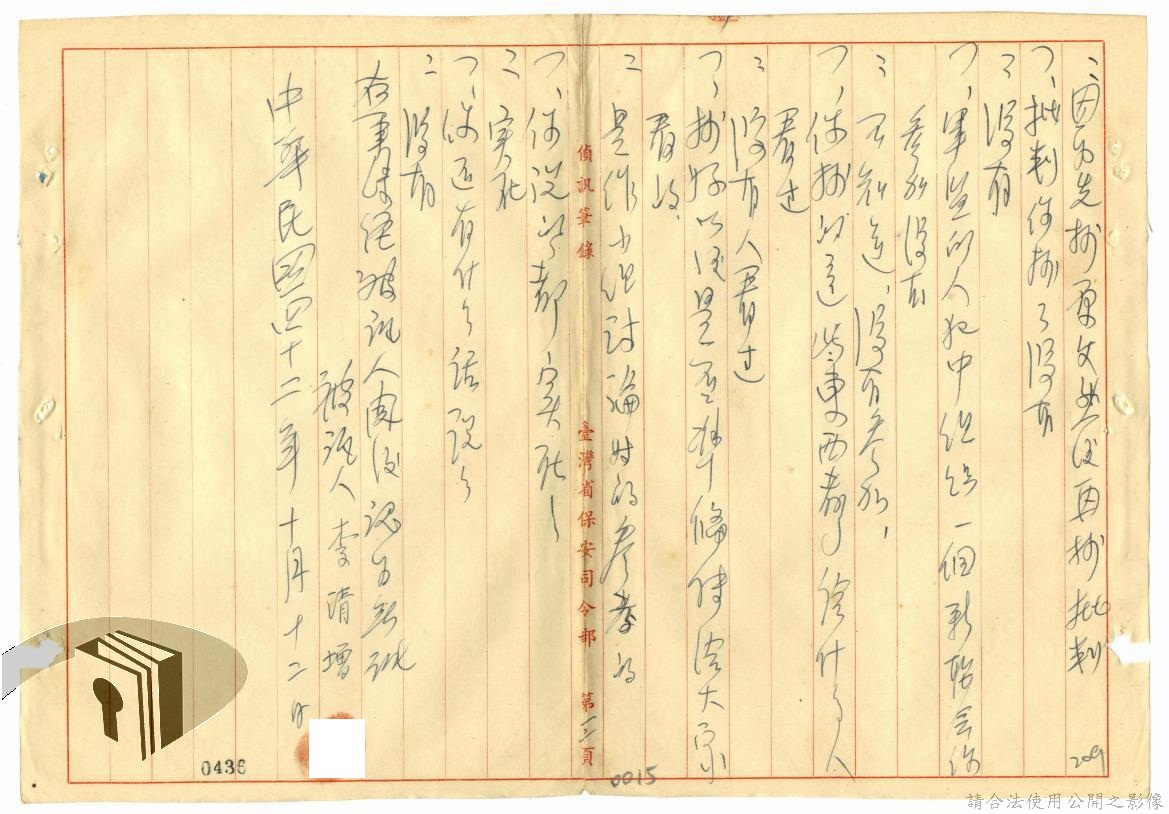 二、因為先抄原文然後再抄批判
一、批判你抄了沒有
二、沒有
一、軍監的人犯中組織一個新聯會你
參加沒有
二、不知道，沒有參加，
一、你抄的這些東西都給什么人
看过
二、沒有人看过
一、抄好以後是否準備傳给大家
看的
二、是作小組討論时的參考的
一、你说的都实在
二、实在
一、你还有什么話説
二、沒有
右筆錄經被訊人閱後認為無訛
被訊人 李清增
中華民國四十二年十月十二日
偵訊筆錄 臺灣省保安司令部 第三頁
209
0015
0436
請合法使用公開之影像